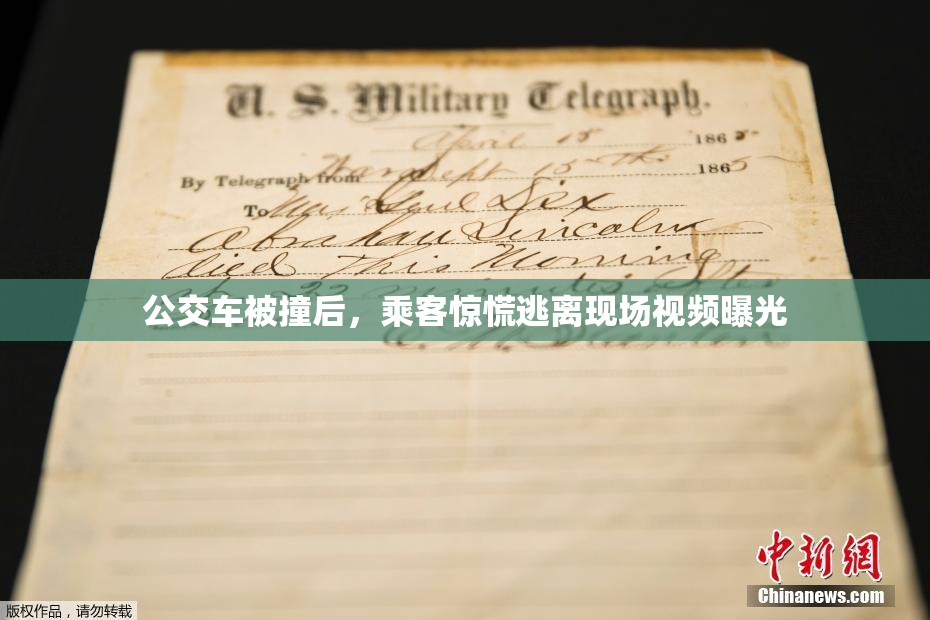 U. S. Military Telegraph.
April 15 1865
By Telegraph from Wash Sept 15th 1865
To Maj Genl Dix
Abraham Lincoln
died This Morning
at 22 minutes after
公交车被撞后，乘客惊慌逃离现场视频曝光
E. M. Stanton
中新网
Chinanews.com
版权作品，请勿转载